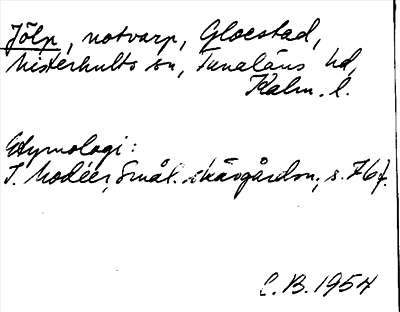 Jölp, notvarp, Gloestad,
Misterhults sn, Tunaläns hd,
Kalm. l.
Etymologi:
I. Modéer, Smål. skärgårdsn., s. 76 f.
C.B. 1954